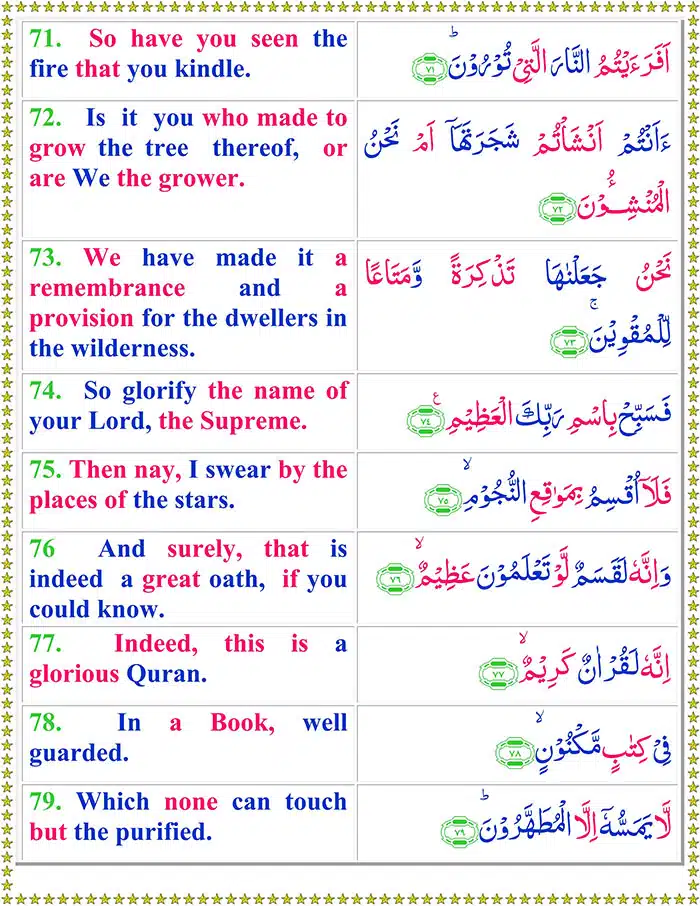 71. So have you seen the
fire that you kindle.
اَفَرَءَيْتُمُ النَّارَ الَّتِيْ تُوْرُوْنَ ؕ ﴿۷۱﴾
72. Is it you who made to
grow the tree thereof, or
are We the grower.
ءَاَنْتُمْ اَنْشَاْتُمْ شَجَرَتَهَاۤ اَمْ نَحْنُ
الْمُنْشِـُٔوْنَ ﴿۷۲﴾
73. We have made it a
remembrance and a
provision for the dwellers in
the wilderness.
نَحْنُ جَعَلْنٰهَا تَذْكِرَةً وَّمَتَاعًا
لِّلْمُقْوِيْنَ ۚ ﴿۷۳﴾
74. So glorify the name of
your Lord, the Supreme.
فَسَبِّحْ بِاسْمِ رَبِّكَ الْعَظِيْمِ ﴿۷۴﴾
75. Then nay, I swear by the
places of the stars.
فَلَاۤ اُقْسِمُ بِمَوٰقِعِ النُّجُوْمِ ۙ ﴿۷۵﴾
76 And surely, that is
indeed a great oath, if you
could know.
وَاِنَّهٗ لَقَسَمٌ لَّوْ تَعْلَمُوْنَ عَظِيْمٌ ۙ ﴿۷۶﴾
77. Indeed, this is a
glorious Quran.
اِنَّهٗ لَقُرْاٰنٌ كَرِيْمٌ ۙ ﴿۷۷﴾
78. In a Book, well
guarded.
فِيْ كِتٰبٍ مَّكْنُوْنٍ ۙ ﴿۷۸﴾
79. Which none can touch
but the purified.
لَّا يَمَسُّهٗۤ اِلَّا الْمُطَهَّرُوْنَ ؕ ﴿۷۹﴾